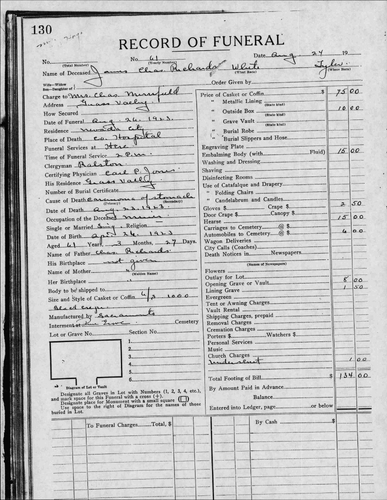 130
RECORD OF FUNERAL
No. No. 61 Date Aug 24 19
Name of Deceased James Chas. Richards White Tyler
Charge to Mrs. Chas Merrifield Order Given by
Address Grass Valley Price of Casket or Coffin $ 75 00
How Secured " Metallic Lining
Date of Funeral Aug 26, 1923 " Outside Box 10 00
Residence Nevada City " Grave Vault
Place of Death Co. Hospital " Burial Robe
Funeral Services at Here " Burial Slippers and Hose
Time of Funeral Service 2 P.M. Engraving Plate
Clergyman Ralston Embalming Body (with Fluid) 15 00
Certifying Physician Carl P. Jones Washing and Dressing
His Residence Grass Valley Shaving
Number of Burial Certificate Disinfecting Rooms
Cause of Death Carcinoma of stomach Use of Catafalque and Drapery
Date of Death Aug 1923 " Folding Chairs
Occupation of the Deceased Miner " Candelabrum and Candles
Single or Married Sing Religion Gloves $ Crape $ 2 50
Date of Birth 1923 Door Crape $ Canopy $
Aged 61 Years 3 Months 27 Days Hearse 15 00
Name of Father Chas. Richards Carriages to Cemetery @ $
His Birthplace not given Automobiles to Cemetery @ $ 6 00
Name of Mother Wagon Deliveries
Her Birthplace City Calls (Coaches)
Body to be shipped to Death Notices in Newspapers
Size and Style of Casket or Coffin 6/3 1000 Flowers
Black crepe Outlay for Lot 5 00
Manufactured by Sacramento Opening Grave or Vault 1 50
Interment at Cemetery Lining Grave
Lot or Grave No. Section No. Evergreen
Tent or Awning Charges
Vault Rental
Shipping Charges, prepaid
Removal Charges
Cremation Charges
Porters $ Watchers $
Personal Services
Music
Church Charges
1 00
Diagram of Lot or Vault
1. 2. 3. 4. 5. 6.
Designate all Graves in Lot with Numbers (1, 2, 3, 4, etc.), and mark space for this Funeral with a cross (+).
Designate place for Monument with a small square
Use space to right of Diagram for the names of those buried in Lot.
Total Footing of Bill $ 134 00
By Amount Paid in Advance
Balance
Entered into Ledger, page or below
To Funeral Charges Total, $ By Cash $